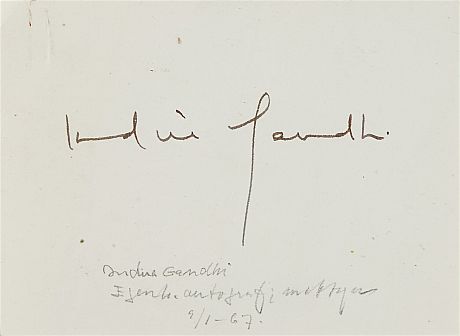 Indira Gandhi
Indira Gandhi
Egenh. autograf i
9/1-67.